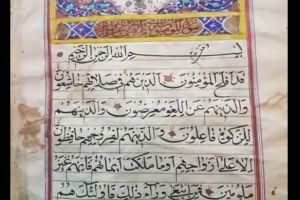 بسم الله الرحمن الرحيم
قد افلح المؤمنون الذين هم فى صلاتهم خاشعون
والذين هم عن اللغو معرضون والذين هم
للزكوة فاعلون والذين هم لفروجهم حافظون
الا على ازواجهم او ما ملكت ايمانهم فانهم غير
ملومين فمن ابتغى وراء ذلك فاولئك هم